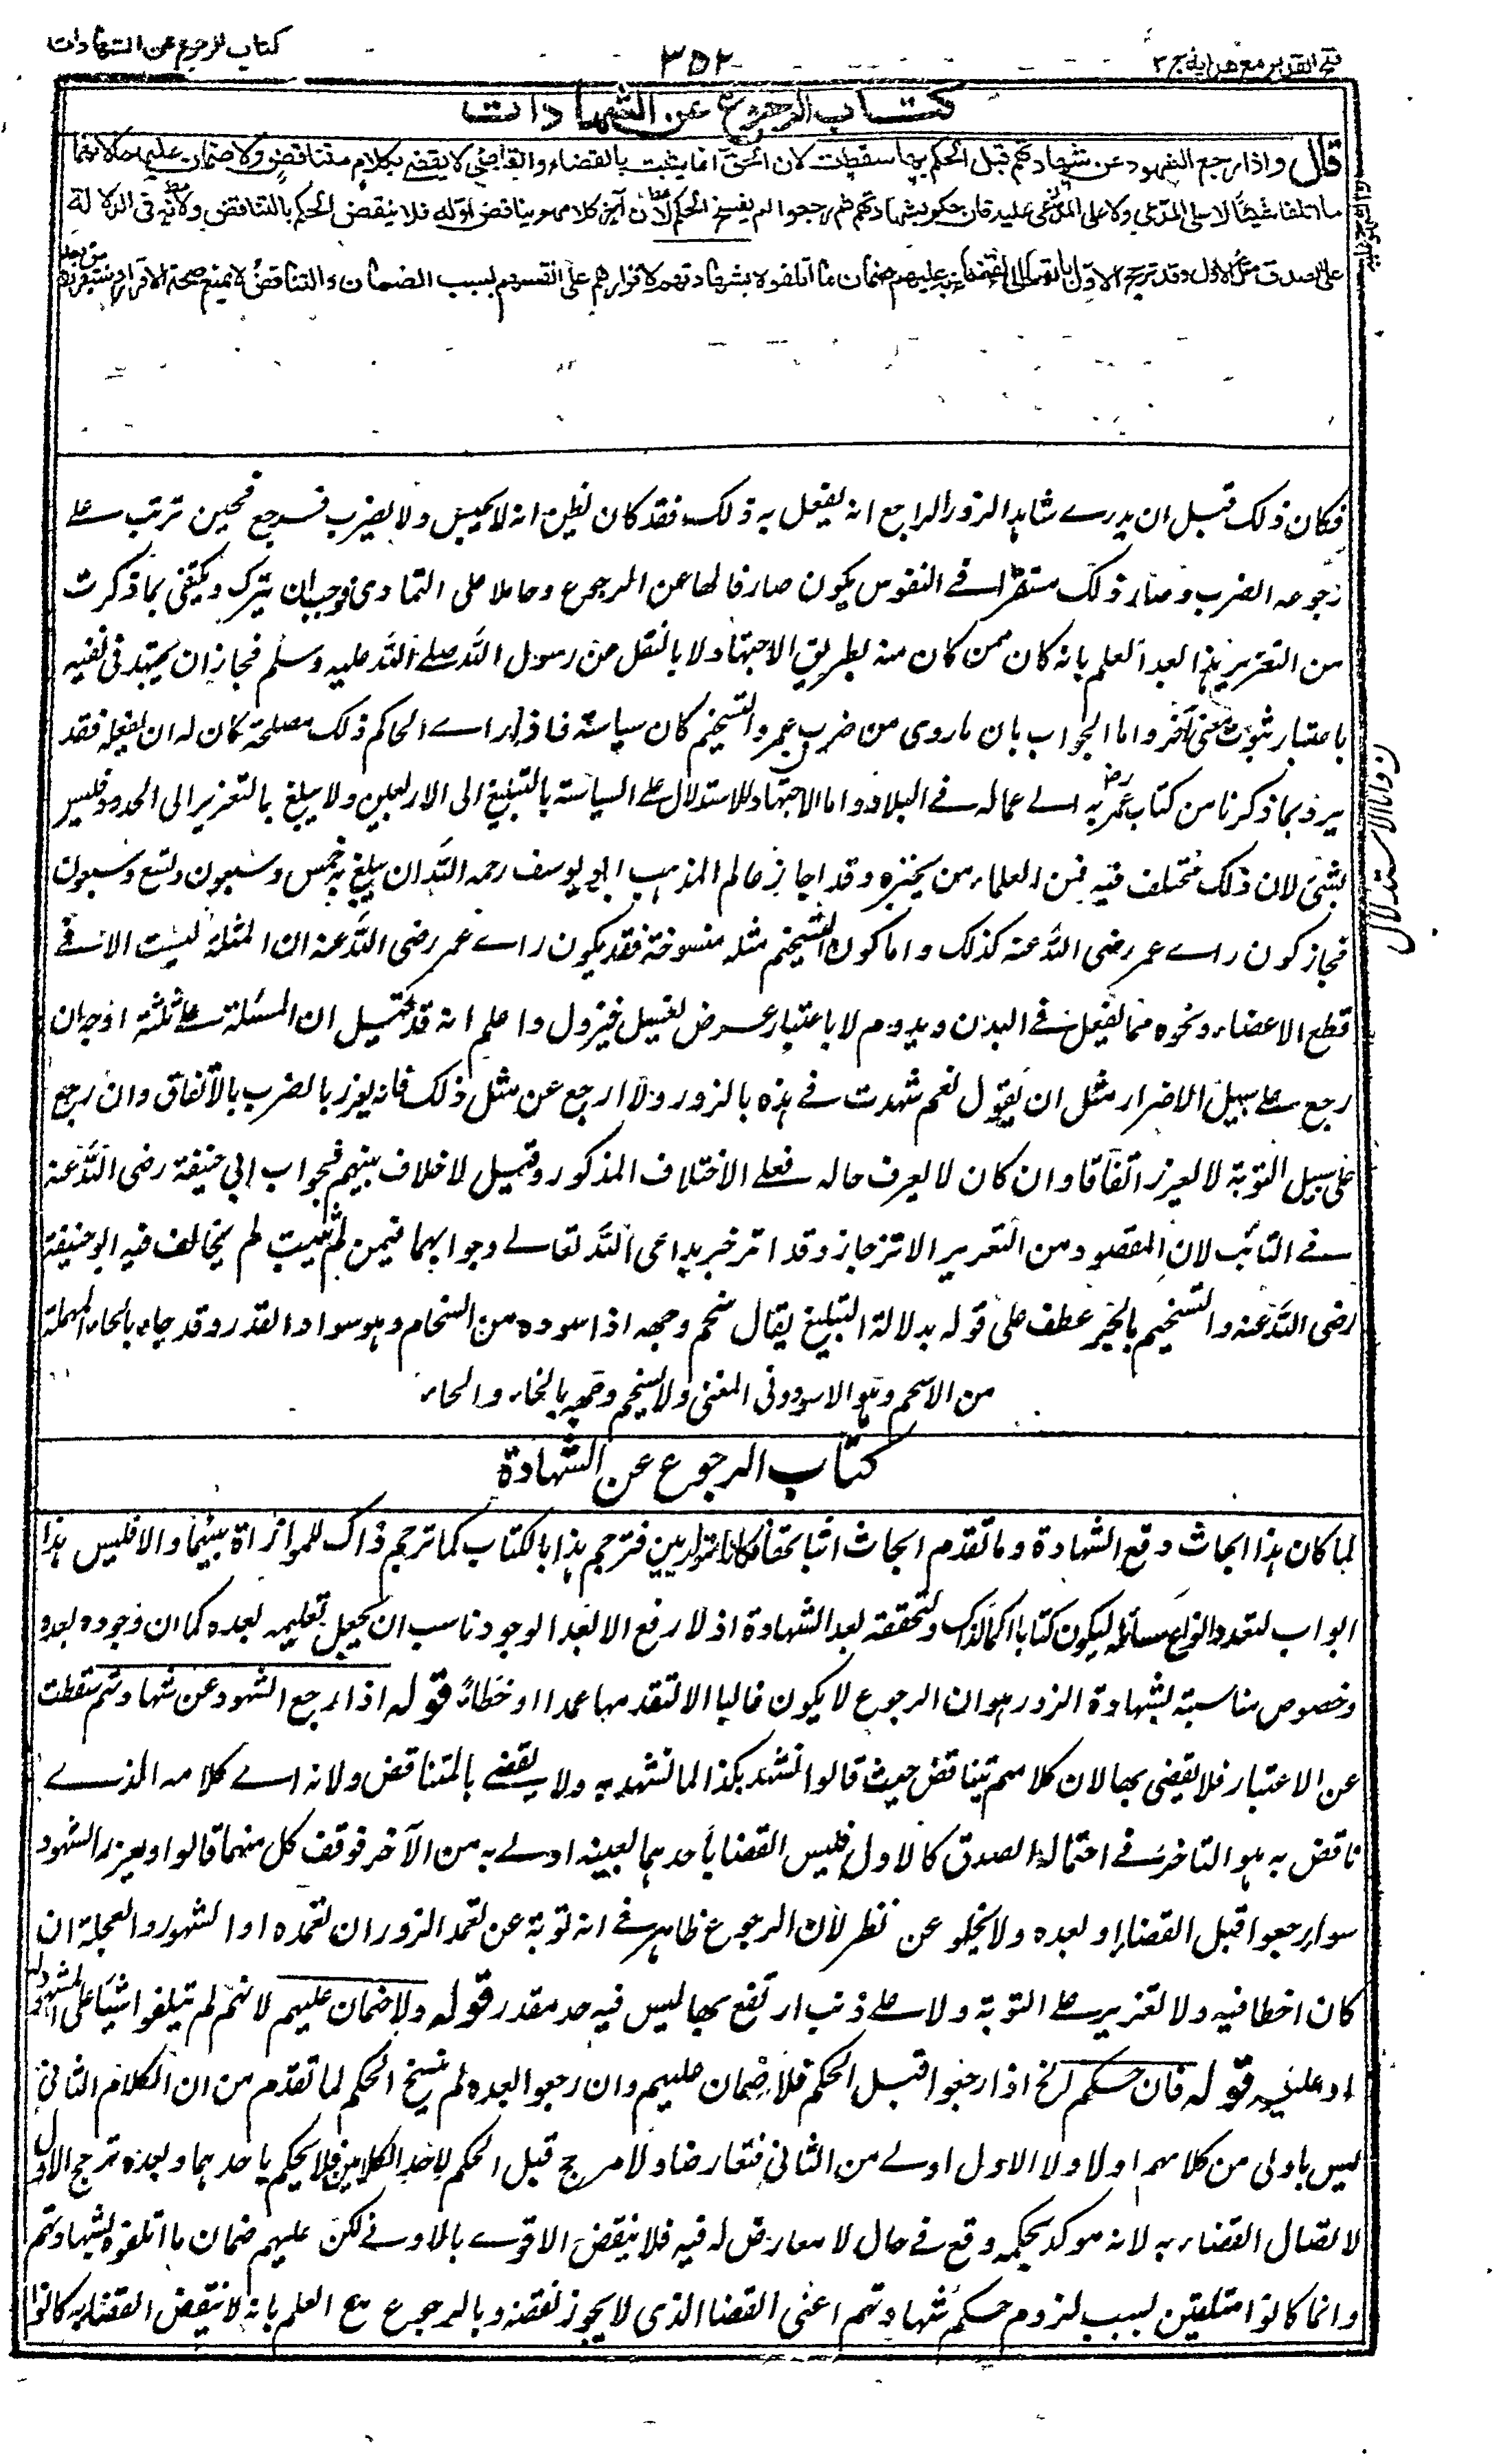 فتح القدير مع هدايه ج ٣
٣٥٢
كتاب الرجوع عن الشهادات
كتاب الرجوع عن الشهادات
قال واذا رجع الشهود عن شهادتهم قبل الحكم بها سقطت لان الحق انما يثبت بالقضاء والقاضي لا يقضي بكلام متناقض ولا ضمان عليهما لانهما
ما اتلفا شيئا لا على المدعي ولا على المدعى عليه فان حكم بشهادتهم ثم رجعوا لم يفسخ الحكم لان آخر كلامهم يناقض اوله فلا ينقض الحكم بالتناقض ولانه في الدلالة
على الصدق مثل الاول وقد ترجح الاول باتصال القضاء به وعليهم ضمان ما اتلفوه بشهادتهم لاقرارهم على انفسهم بسبب الضمان والتناقض لا يمنع صحة الاقرار وسنقرره من بعد
فكان ذلك قبل ان يدرے شاهد الزور الراجع انه يفعل به ذلك فقد كان يظن انه لا يحبس ولا يضرب فرجع فحين ترتب علے
رجوعه الضرب وصار ذلك مستقرا فے النفوس يكون صارفا لها عن الرجوع وحاملا على التمادى فوجب ان يترك ويكتفى بما ذكرت
من التعزير هذا بعد العلم بانه كان ممن كان منه بطريق الاجتهاد لا بالنقل من رسول الله صلے الله عليه وسلم فجاز ان يجتهد فى نفيه
باعتبار ثبوت معنى آخر واما الجواب بان ماروى من ضرب عمر والتسخيم كان سياسة فاذا راے الحاكم ذلك مصلحة كان له ان يفعله فقد
يرد بما ذكرنا من كتاب عمر رض به الے عماله فے البلاد واما الاجتهاد للاستدلال علے السياسة بالتبليغ الى الاربعين ولا يبلغ بالتعزير الى الحدود فليس
بشئ لان ذلك مختلف فيه فمن العلماء من يجيزه وقد اجاز عالم المذهب ابو يوسف رحمه الله ان يبلغ به خمس وسبعون وتسع وسبعون
فجاز كون راے عمر رضى الله عنه كذلك واما كون التسخيم مثله منسوخة فقد يكون راے عمر رضى الله عنه ان المثلة ليست الا فے
قطع الاعضاء ونحوه مما يفعل فے البدن ويدوم لا باعتبار عرض يغسل فيزول واعلم انه قد قيل ان المسئلة علے ثلثة اوجه ان
رجع علے سبيل الاضرار مثل ان يقول نعم شهدت فے هذه بالزور ولا ارجع عن مثل ذلك فانه يعزر بالضرب بالاتفاق وان رجع
على سبيل التوبة لا يعزر اتفاقا وان كان لا يعرف حاله فعلے الاختلاف المذكور وقيل لا خلاف بينهم فجواب ابى حنيفة رضى الله عنه
فے التائب لان المقصود من التعزير الانزجار وقد انزجر بداعى الله تعالے وجوابهما فيمن لم يتب لم يخالف فيه ابو حنيفة
رضى الله عنه والتسخيم بالجر عطف على قوله بدلالة التبليغ يقال سخم وجهه اذا سوده من السخام وهو سواد القدر وقد جاء بالحاء المهملة
من الاسحم وهو الاسود وفى المغنى ولا يسخم وجهه بالخاء والحاء
ن واما الاستدلال
كتاب الرجوع عن الشهادة
لما كان هذا ابحاث رفع الشهادة وما تقدم ابحاث اثباتها فكانا متوازيين فترجم هذا بالكتاب كما ترجم ذاك للموازاة بينهما والا فليس هذا
ابواب لتعدد انواع مسائله ليكون كتابا كما لذاك ولتحققه بعد الشهادة اذ لا رفع الا بعد الوجود ناسب ان يجعل تعليمه بعده كما ان وجوده بعده
وخصوص مناسبة بشهادة الزور هو ان الرجوع لا يكون غالبا الا لتقدمها عمدا او خطاء قوله اذا رجع الشهود عن شهادتهم سقطت
عن الاعتبار فلا يقضى بها لان كلامهم يتناقض حيث قالوا نشهد بكذا لما نشهد به ولا يقضے بالمتناقض ولانه اے كلامه الذے
ناقض به هو المتاخر فے احتمال الصدق كالاول فليس القضا باحدهما بعينه اولے به من الآخر فوقف كل منهما قالوا ويعزر الشهود
سواء رجعوا قبل القضاء او بعده ولا يخلو عن نظر لان الرجوع ظاهر فے انه توبة عن تعمد الزور ان تعمده او التهور والعجلة ان
كان اخطا فيه ولا تعزير علے التوبة ولا علے ذنب ارتفع بها ليس فيه حد مقدر قوله ولا ضمان عليهم لانهم لم يتلفوا شيئا على المشهود له
او عليه قوله فان حكم الخ اذا رجعوا قبل الحكم فلا ضمان عليهم وان رجعوا بعده لم يفسخ الحكم لما تقدم من ان الكلام الثانى
ليس باولى من كلامهم اولا ولا الاول اولے من الثانى فتعارضا ولا مرجح قبل الحكم لاحد الكلامين فلا يحكم باحدهما وبعده ترجح الاول
لاتصال القضاء به لانه موكد بحكم وقع فے حال لا معارض له فيه فلا ينقض الاقوے بالادنے لكن عليهم ضمان ما اتلفوه بشهادتهم
وانما كانوا متلفين بسبب لزوم حكم شهادتهم اعنى القضا الذى لا يجوز نقضه وبالرجوع مع العلم بانه لا ينقض القضاء به كانوا